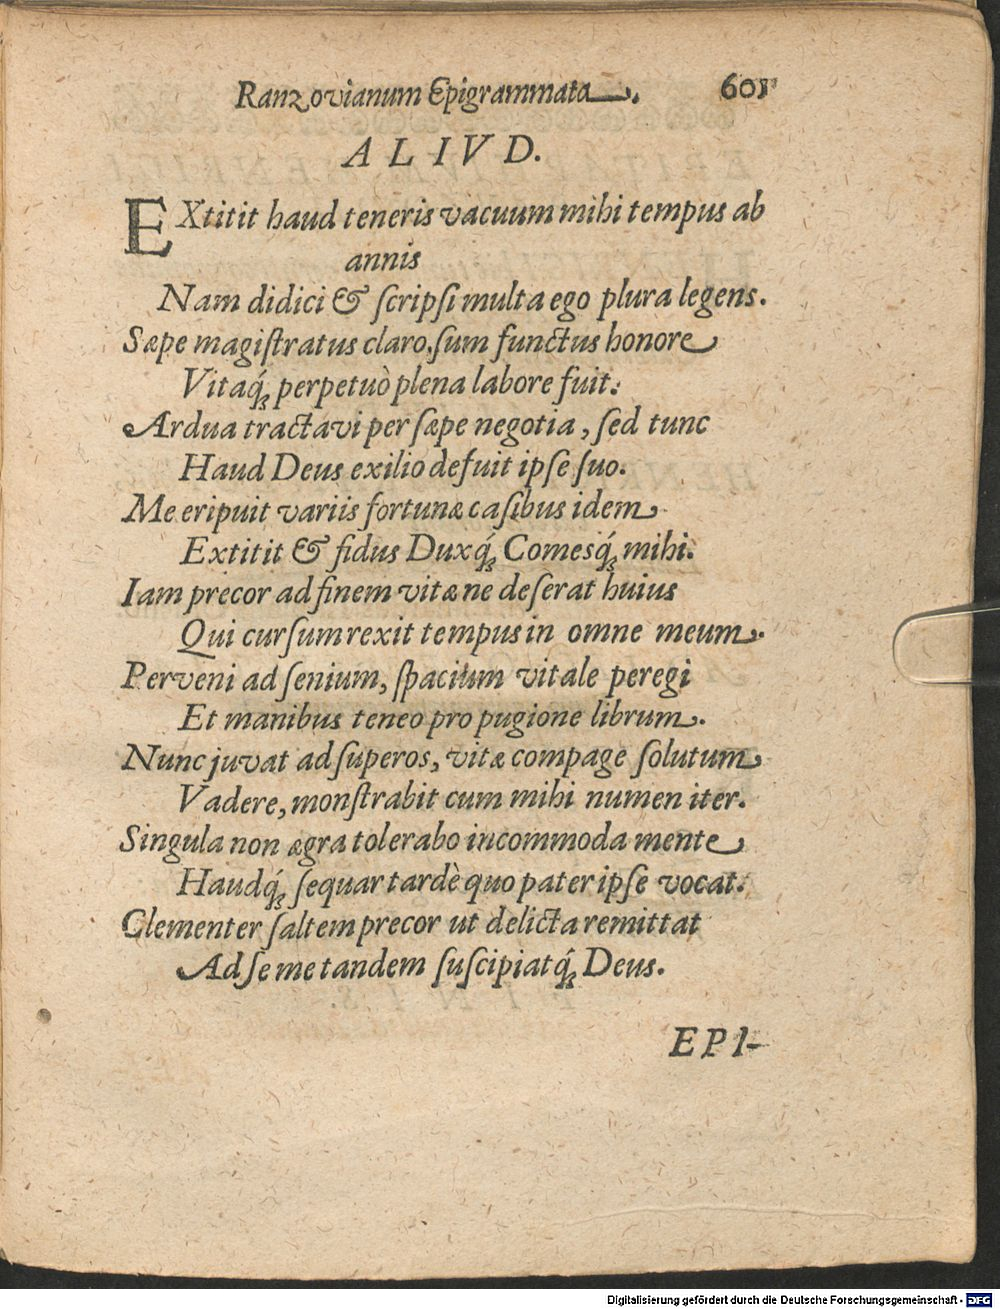 Ranzovianum Epigrammata. 601
ALIVD.
EXtitit haud teneris vacuum mihi tempus ab
annis
Nam didici & ſcripſi multa ego plura legens.
Sæpe magiſtratus claro ſum functus honore
Vitaq́; perpetuò plena labore fuit:
Ardua tractavi per ſæpe negotia, ſed tunc
Haud Deus exilio defuit ipſe ſuo.
Me eripuit variis fortunæ caſibus idem
Extitit & fidus Duxq́; Comesq́; mihi.
Iam precor ad finem vitæ ne deſerat huius
Qui curſum rexit tempus in omne meum.
Perveni ad ſenium, ſpacium vitale peregi
Et manibus teneo pro pugione librum.
Nunc juvat ad ſuperos, vitæ compage ſolutum
Vadere, monſtrabit cum mihi numen iter.
Singula non ægra tolerabo incommoda mente
Haudq́; ſequar tardè quo pater ipſe vocat.
Clementer ſaltem precor ut delicta remittat
Ad ſe me tandem ſuſcipiatq́; Deus.
EPI-
Digitalisierung gefördert durch die Deutsche Forschungsgemeinschaft - DFG